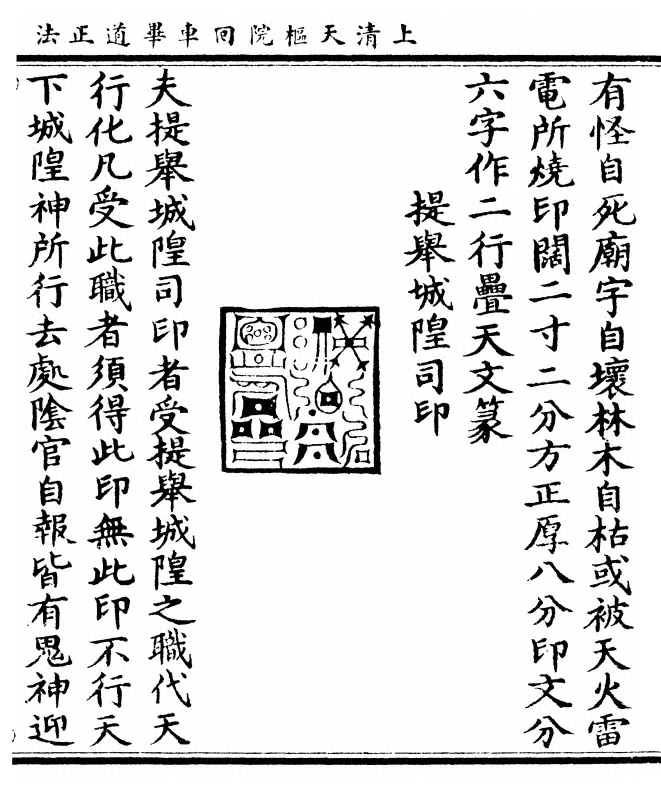 上清天樞院回車畢道正法
有怪自死廟宇自壞林木自枯或被天火雷
電所燒印闊二寸二分方正厚八分印文分
六字作二行疊天文篆
提舉城隍司印
夫提舉城隍司印者受提舉城隍之職代天
行化凡受此職者須得此印無此印不行天
下城隍神所行去處陰官自報皆有鬼神迎